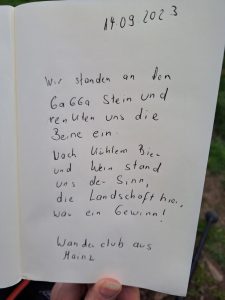 14.09 2023
Wir standen an den
GaGGa Stein und
renkten uns die
Beine ein.
Nach kühlem Bier
und Wein stand
uns der Sinn,
die Landschaft hier,
war ein Gewinn!
Wanderclub aus
Mainz